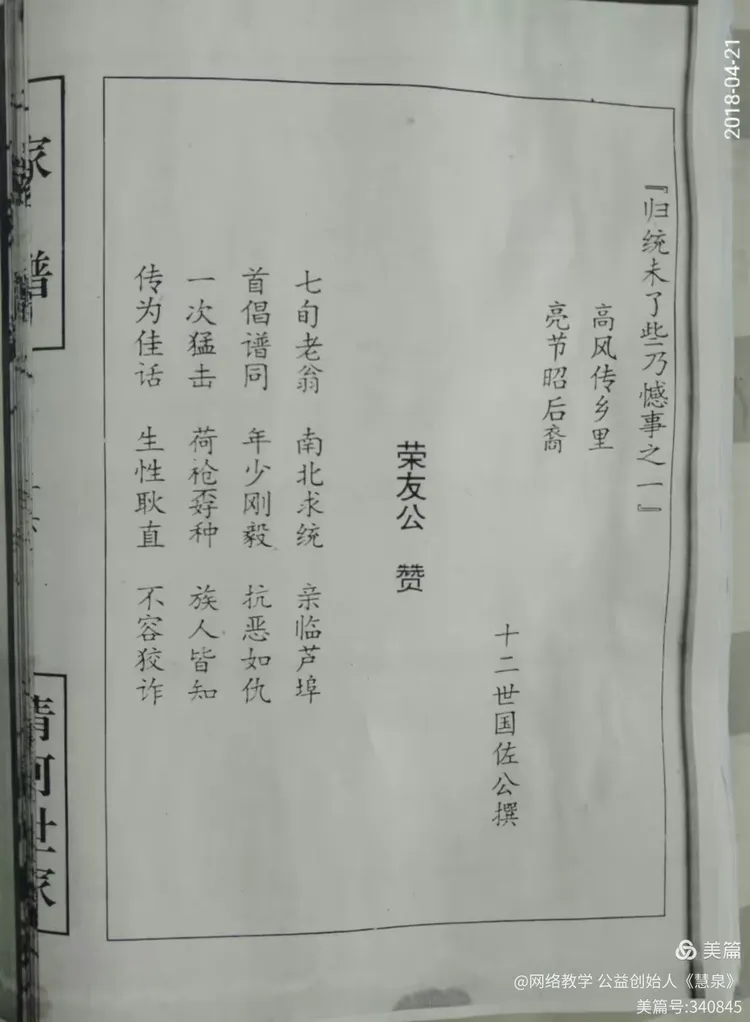 『归统未了些乃憾事之一』
高风传乡里
亮节昭后裔
十二世国佐公撰
荣友公 赞
七旬老翁 南北求统 亲临芦埠
首倡谱同 年少刚毅 抗恶如仇
一次猛击 荷枪孬种 族人皆知
传为佳话 生性耿直 不容狡诈
家谱
清河世家
2018-04-21
美篇
@网络教学 公益创始人《慧泉》
美篇号:340845